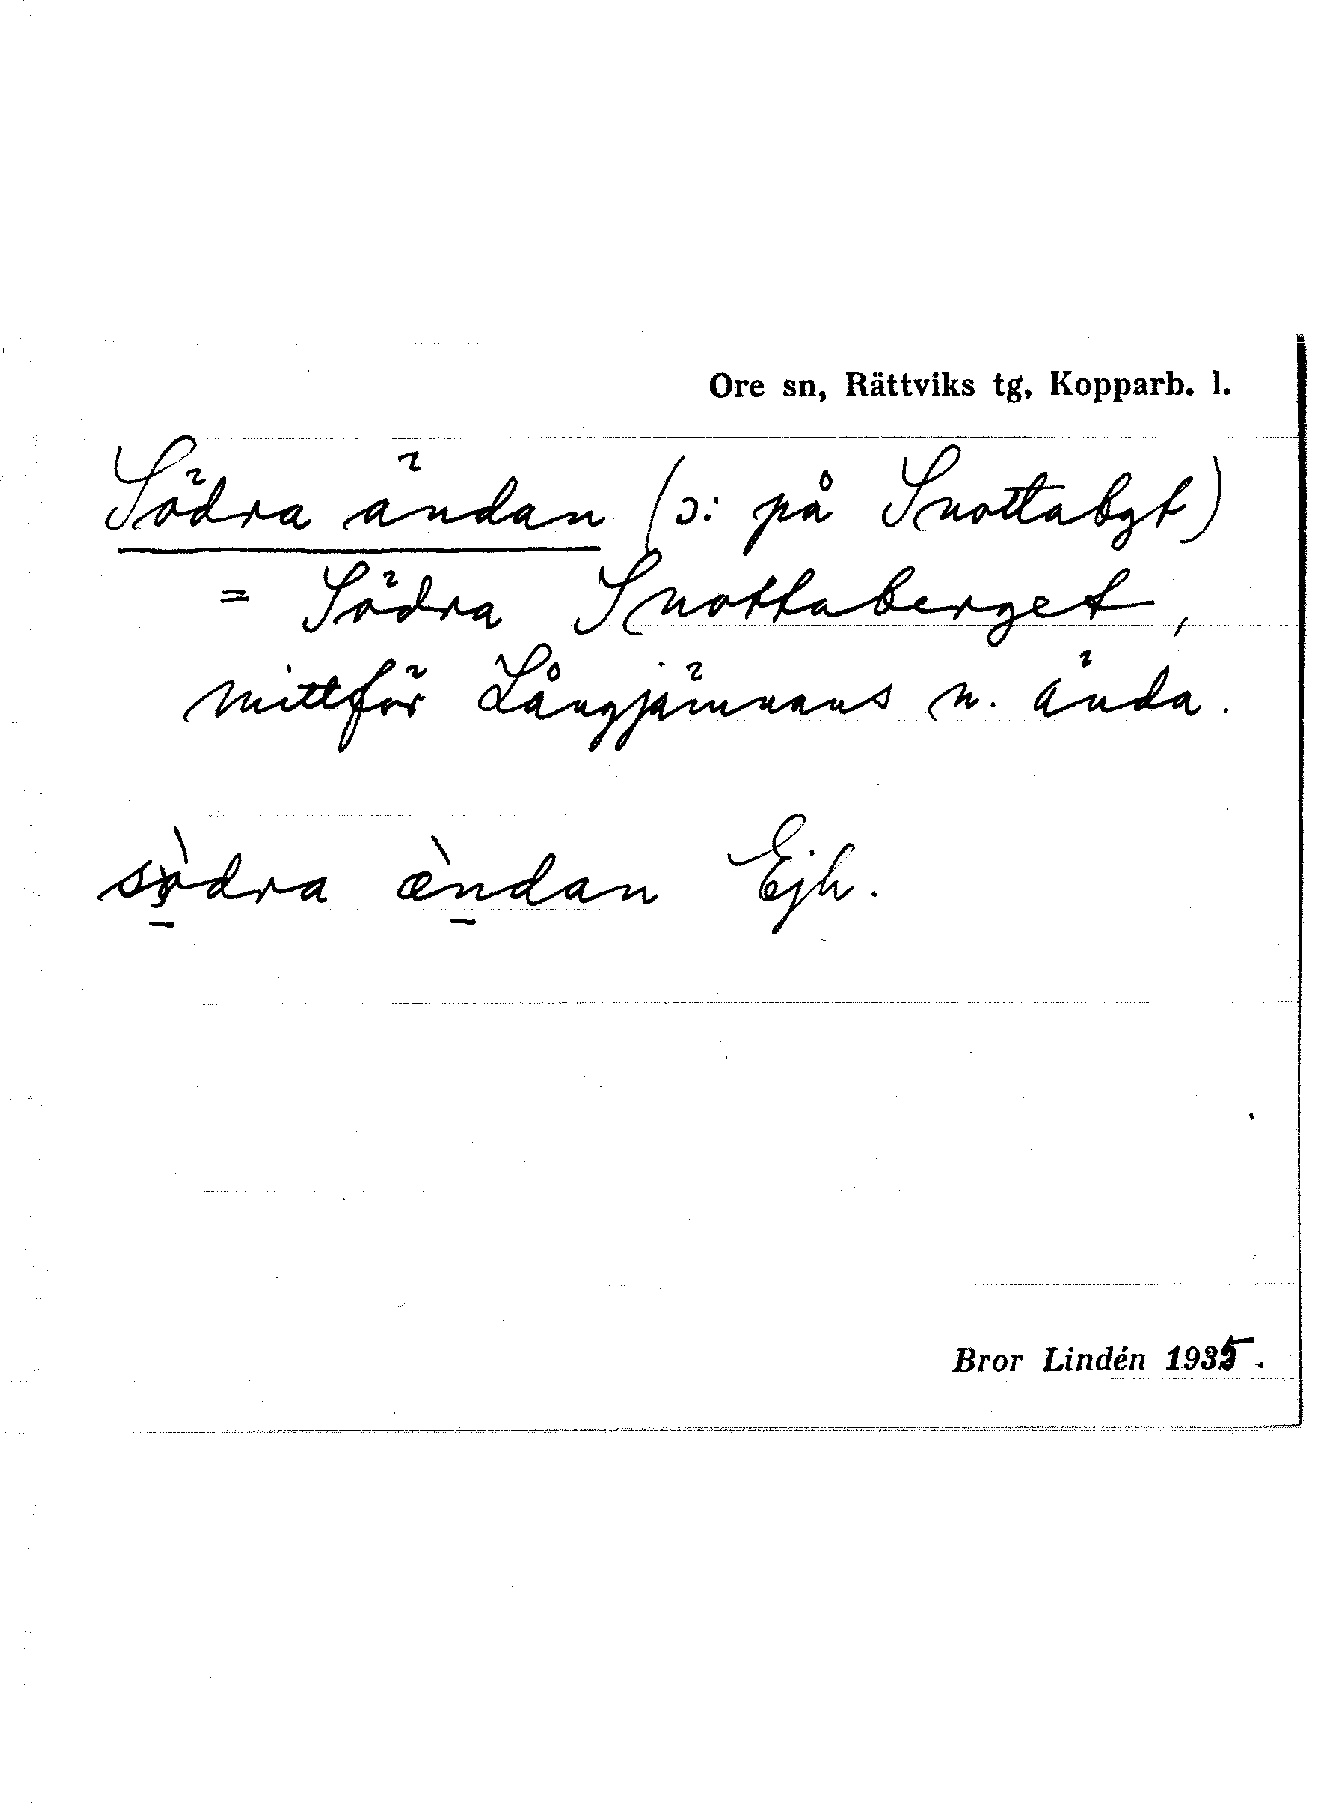 Ore sn, Rättviks tg, Kopparb. l.
Södra ändan (ɔ: på Snottabgt)
= Södra Snottaberget,
mittför Långjämnans n. ända.
sö̀dra æ̀ndan Ejh.
Bror Lindén 1935.